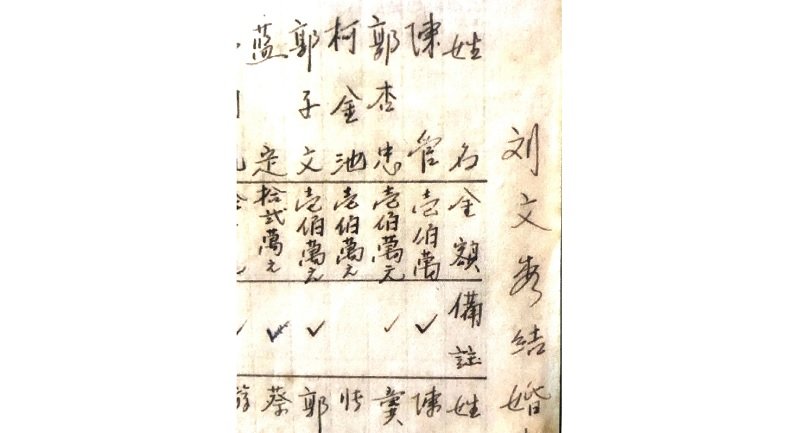 刘文秀结婚
姓名 金額 備註 姓
陳管 壹佰萬 陳
郭杏忠 壹佰萬元
柯金池 壹佰萬元
郭子文 壹佰萬元 郭
蓝定 拾贰萬元 蔡